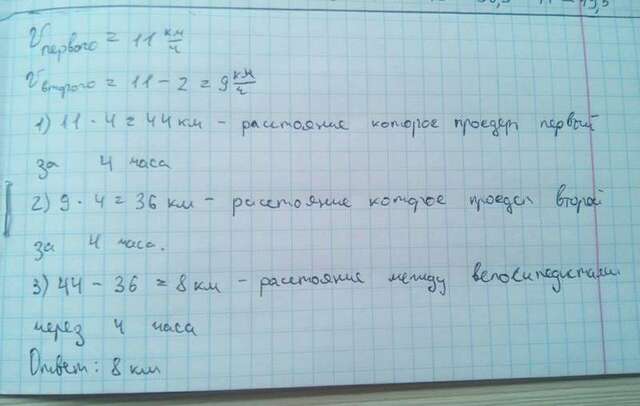 V первого = 11 км/ч
V второго = 11 - 2 = 9 км/ч
1) 11 · 4 = 44 км - расстояние которое проедет первый
за 4 часа
2) 9 · 4 = 36 км - расстояние которое проедет второй
за 4 часа.
3) 44 - 36 = 8 км - расстояние между велосипедистами
через 4 часа
Ответ: 8 км